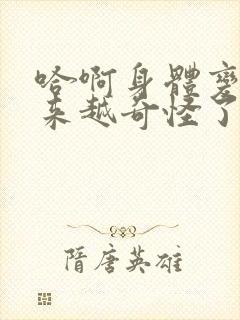 哈啊身體變
来越奇怪了
隋唐英雄